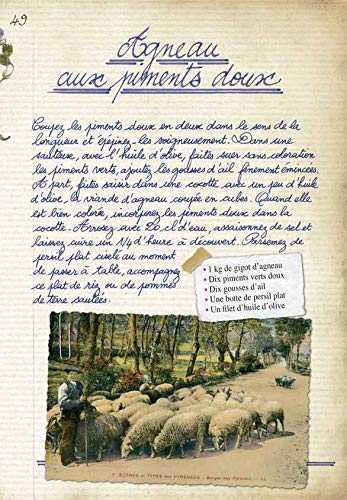 49
Agneau
aux piments doux
Coupez les piments doux en deux dans le sens de la
longueur et épépinez-les soigneusement. Dans une
sauteuse, avec l'huile d'olive, faites suer sans coloration
les piments verts, ajoutez les gousses d'ail finement émincées.
A part, faites saisir dans une cocotte, avec un peu d'huile
d'olive, la viande d'agneau coupée en cubes. Quand elle
est bien colorée, incorporez les piments doux dans la
cocotte. Arrosez avec 20 cl d'eau, assaisonnez de sel et
laissez cuire un 1/4 d'heure à découvert. Parsemez de
persil plat ciselé au moment
de passer à table, accompagnez
ce plat de riz ou de pommes
de terre sautées.
• 1 kg de gigot d'agneau
• Dix piments verts doux
• Dix gousses d'ail
• Une botte de persil plat
• Un filet d'huile d'olive
SCÈNES et TYPES des PYRÉNÉES - Berger des Pyrénées - LL